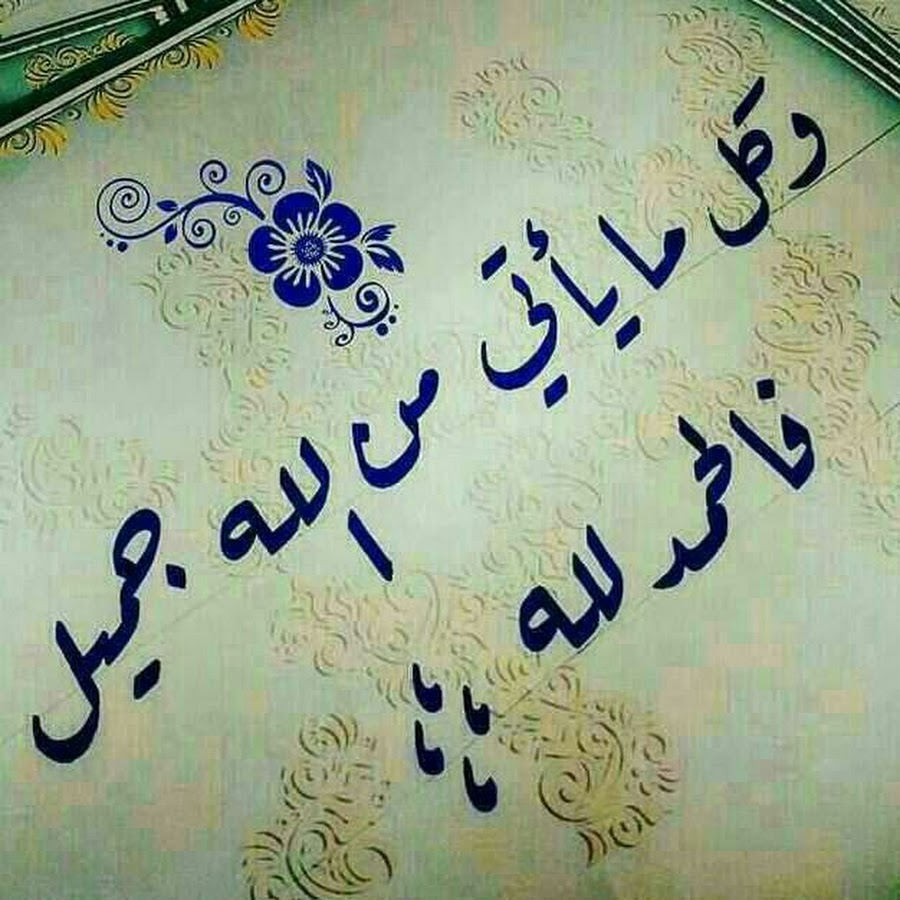 وكل ما يأتي من الله جميل
فالحمد لله